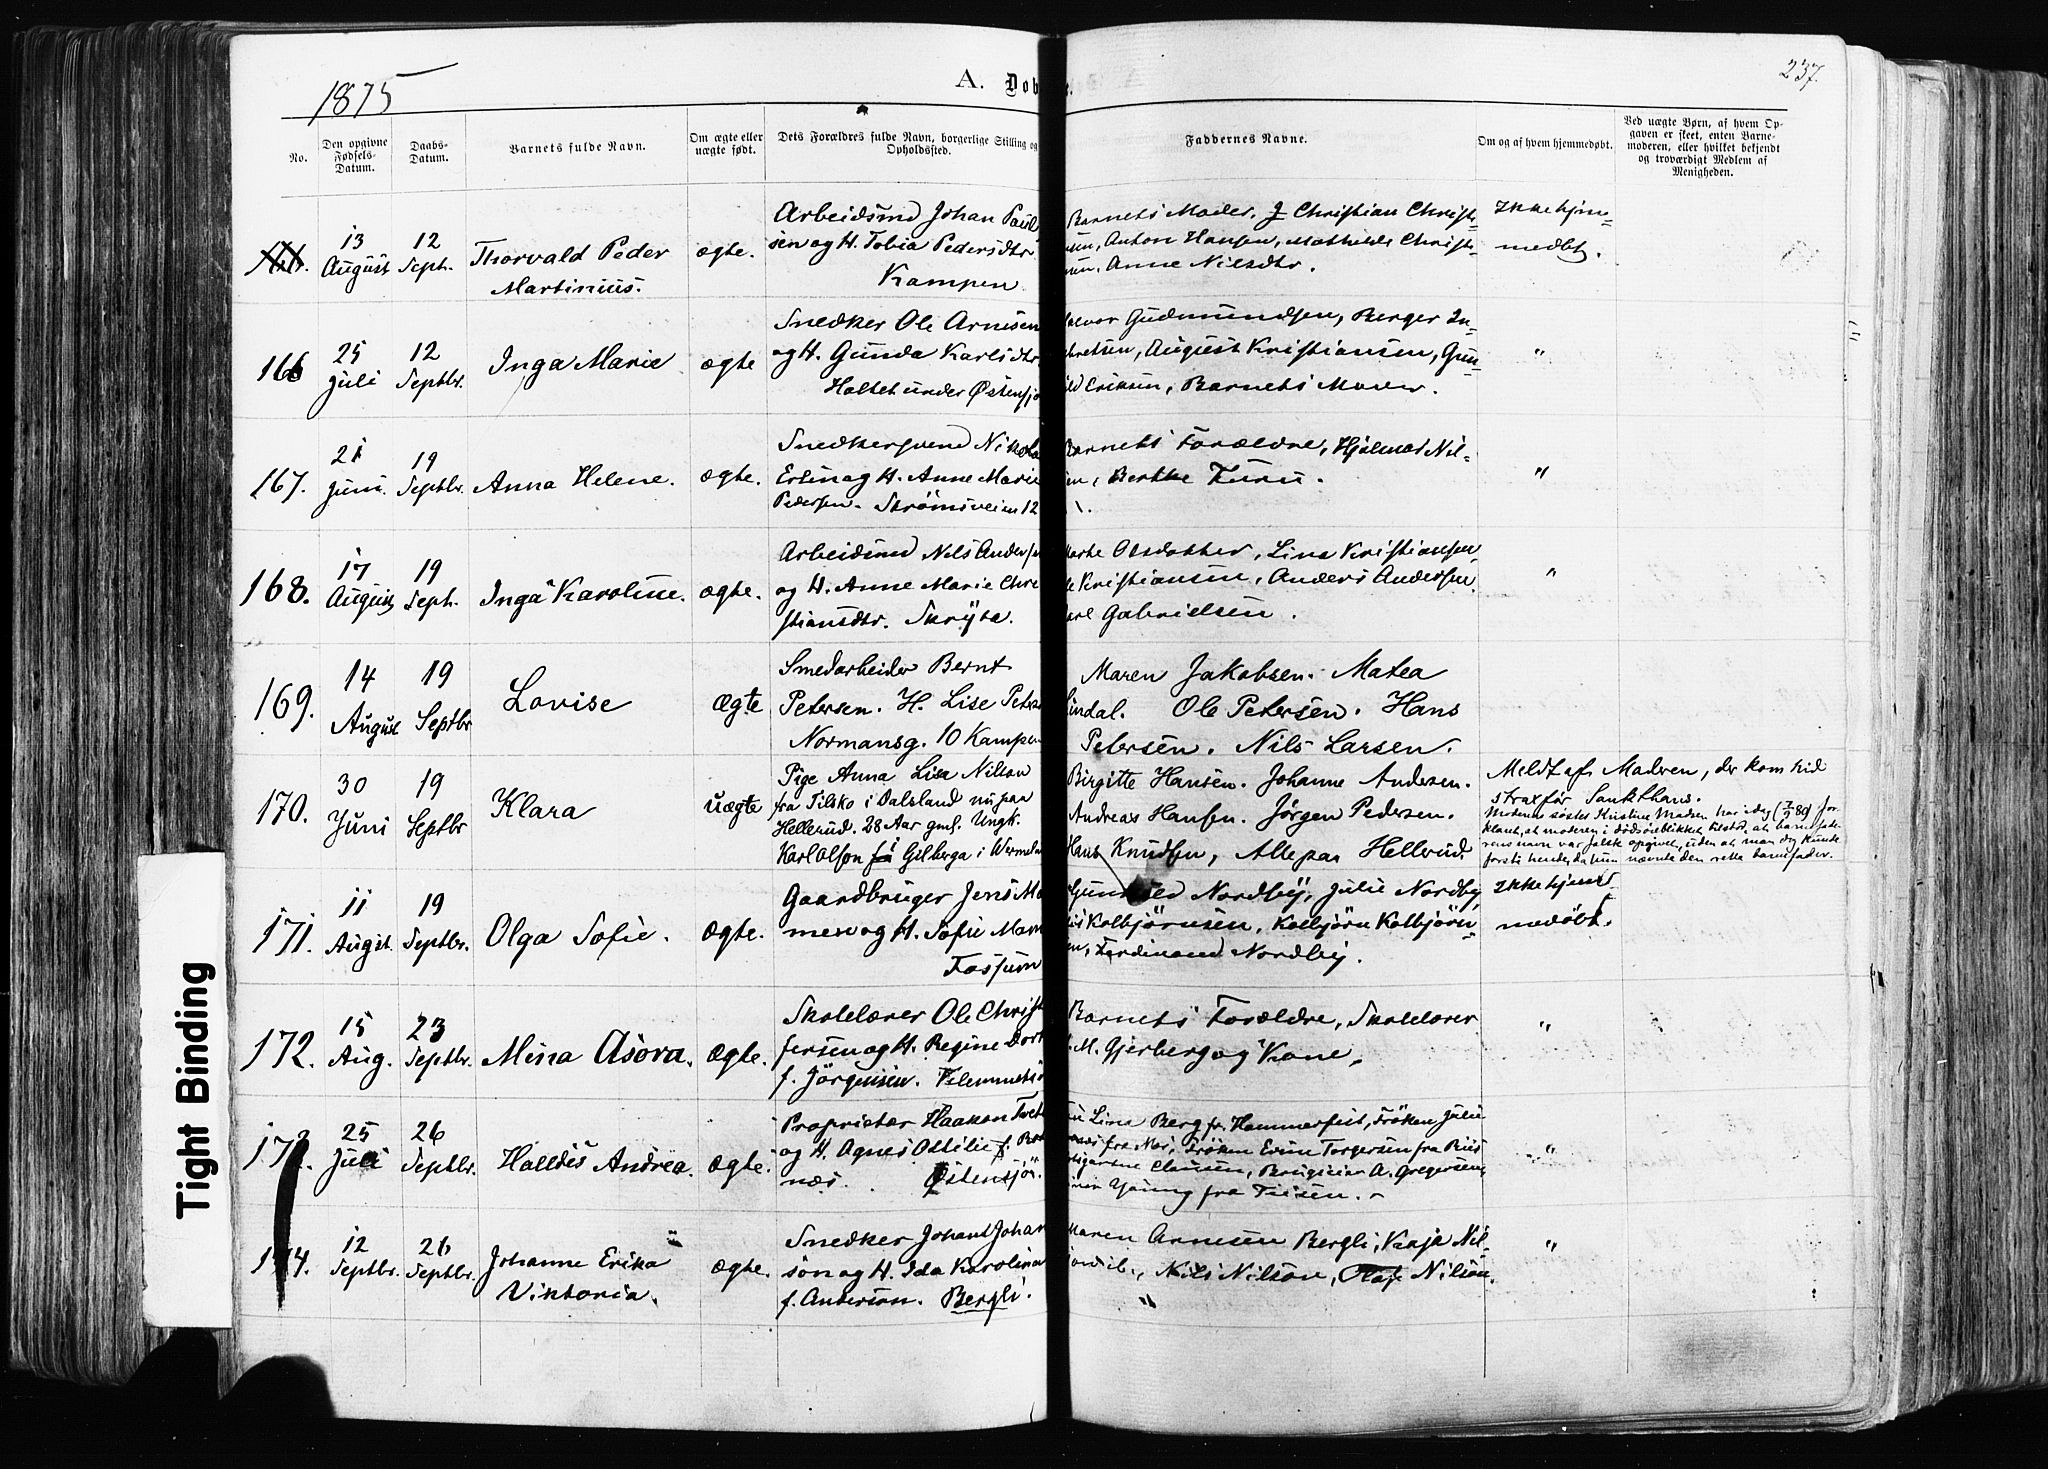 1875
A. Døb
237.
No.
Den opgivne Fødsels-Datum.
Daabs-Datum.
Barnets fulde Navn.
Om ægte eller uægte født.
Dets Forældres fulde Navn, borgerlige Stilling og Opholdssted.
Faddernes Navne.
Om og af hvem hjemmedøbt.
Ved uægte Børn, af hvem Opgaven er skeet, enten Barnemoderen, eller hvilket bekjendt og troværdigt Medlem af Menigheden.
13 August
12 Sept.
Thorvald Peder
Martinius.
ægte.
Arbeidsmd Johan Paul
sen og H. Tobia Pedersdtr
Kampen
Barnets Moder, Christian Christ-
sen, Anton Hansen, Mathilde Christ-
sen, Anne Nilsdtr.
Ikke hjme-
medbt.
166
25 Juli
12 Septbr.
Inga Marie
ægte
Snedker Ole Arnesen
og H. Gunda Karlsdtr.
Holtet under Østensjø
Gudmundsen, Berger In-
August Kristiansen, Gun-
ild Eriksen, Barnets Moder.
"
167.
21 Juni.
19 Septbr.
Anna Helene.
ægte.
Snedkersvend Nikola
og H. Anne Marie
Pedersen. Strømsveien 12
Barnets Forældre, Hjalmar Nil-
en, Berthe
"
168.
17 August
19 Sept.
Inga Karoline.
ægte.
Arbeidsmd Nils Anders
og H. Anne Marie Chri
stiansdtr. Skøyta.
Olsdatter, Lina Kristiansen,
Kristiansen, Anders Andersen,
arl Gabrielsen.
"
169.
14 August
19 Septbr
Lovise
ægte
Smedarbeider Bernt
Petersen. H. Lise Peters
Normansg. 10 Kampen
Maren Jakobsen. Matea
Lindal. Ole Petersen. Hans
Petersen. Nils Larsen.
170.
30 Juni
19 Septbr
Klara
uægte
Pige Anna Lisa Nilson
fra Tilsko i Dalsland nu paa
Hellerud. 28 Aar gml. Ungk.
Karl Olson fra Gilberga i Wermeland
Birgitte Hansen. Johanne Andersen.
Andreas Hansen. Jørgen Pedersen.
Hans Knudsen, Alle paa Hellerud.
Meldt af Modren, der kom hid
strax før Sankthans.
Moderens søster Kristine Madsen har idag
klart, at moderen i dødsøieblikket tilstod, at barnefade-
rens navn var falsk opgivet, uden at man dog kunde
forstå hende, da hun nævnte den rette barnefader.
171.
11 Augst.
19 Septbr.
Olga Sofie.
ægte.
Gaardbruger Jens Mo
men og H. Sofie
Fossum
Gunhild Nordby, Julie Nordby,
Kolbjørnsen, Kolbjørn Kolbjørn-
en, Ferdinand Nordby.
Ikke hjem-
medøbt.
172.
15 Aug.
23 Septbr.
Mina Asora.
ægte.
Skolelærer Ole Christ
fersen og H. Regine Dort
f. Jørgensen.
Barnets Forældre, Skolelærer
M. Gjerberg og Kone,
"
173.
25 Juli
26 Septbr.
Halldis Andrea
ægte.
Proprietær Haakon Tvet
og H. Agnes Ottilie f.
næs. Østensjø.
Lina Berg fr. Hammerfest, Frøken Julie
fra Mos, Frøken Torgersen fra
Clausen, Brugseier A. Gregersen,
Young fra
"
174.
12 Septbr.
26 Septbr.
Johanne Erika
Viktoria.
ægte.
Snedker Johan Johan
son og H. Ida Karolina
f. Anderson. Bergli.
Maren Arnesen Bergli, Kaja Nil-
Nils Nilson, Olaf Nilson.
"
"
Tight Binding